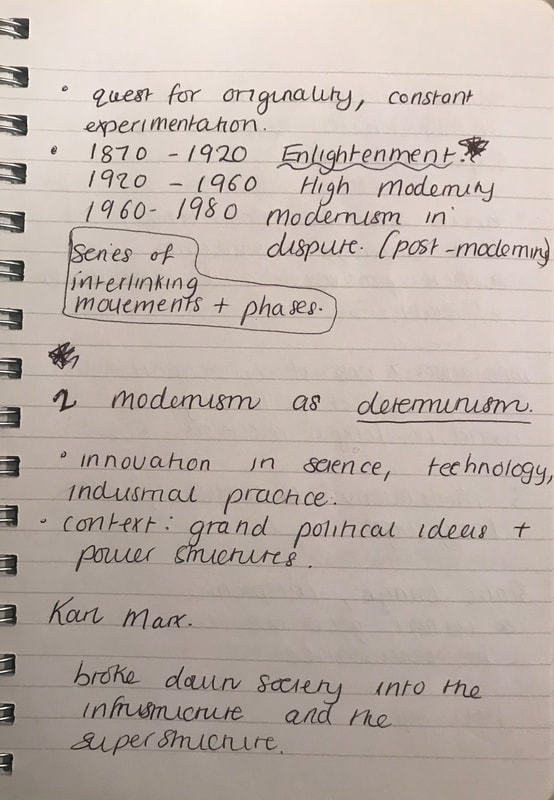 • quest for originality, constant
experimentation.
• 1870 - 1920 Enlightenment.
1920 - 1960 High modernity
1960 - 1980 modernism in
dispute. (post-modernity)
Series of
interlinking
movements + phases.
2 modernism as determinism.
• innovation in science, technology,
industrial practice.
• context: grand political ideas +
power structures.
Karl Marx.
broke down society into the
infrastructure and the
superstructure.